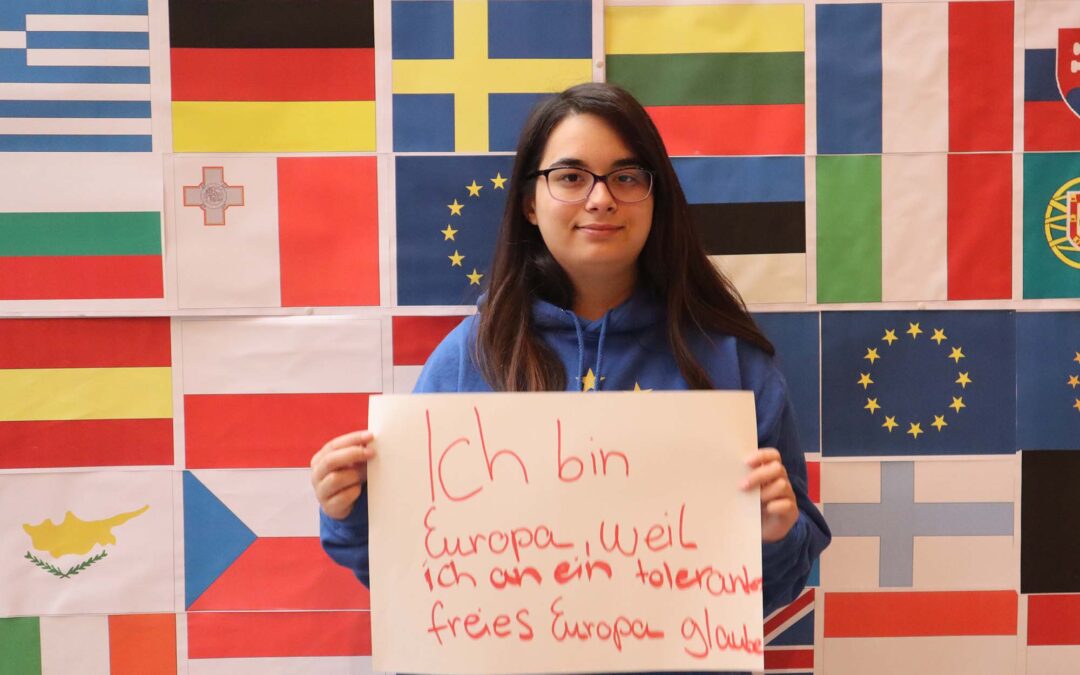 Ich bin
Europa, weil
ich an ein tolerantes
freies Europa glaube